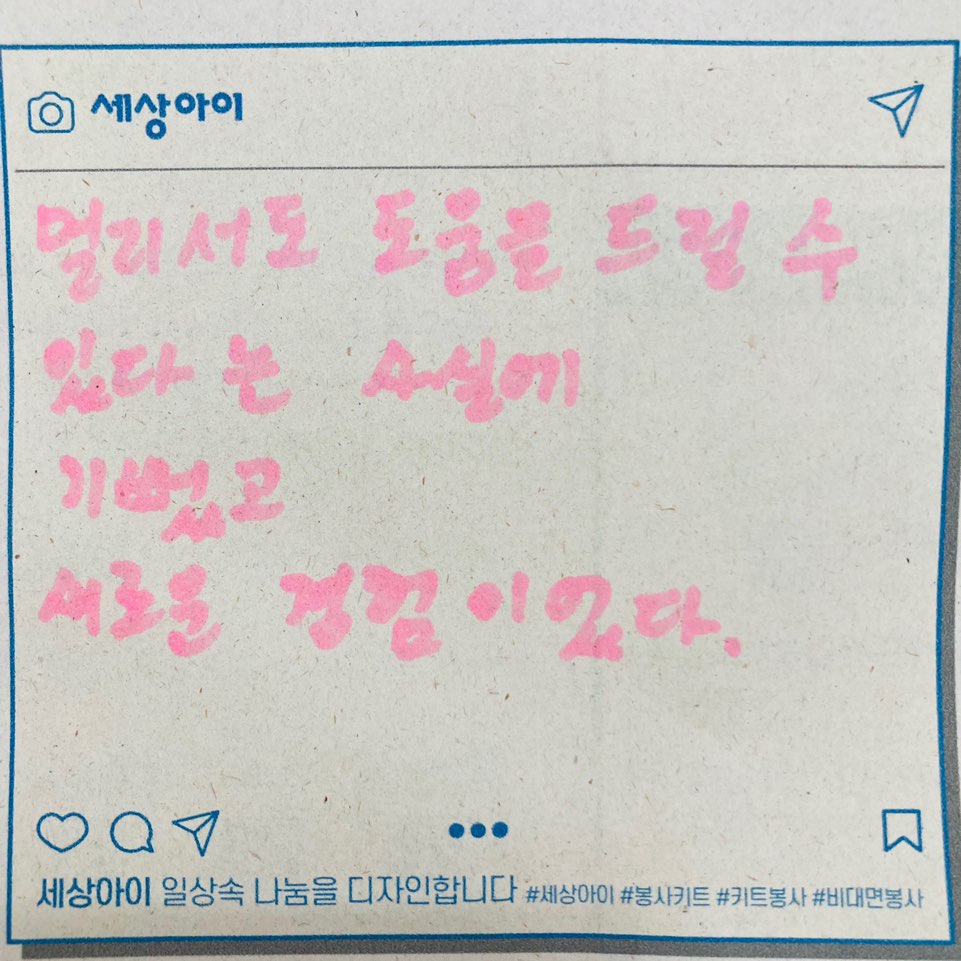 세상아이
멀리서도 도움을 드릴 수
있다는 사실에
기뻤고
새로운 경험이었다.
세상아이 일상속 나눔을 디자인합니다 #세상아이 #봉사키트 #키트봉사 #비대면봉사